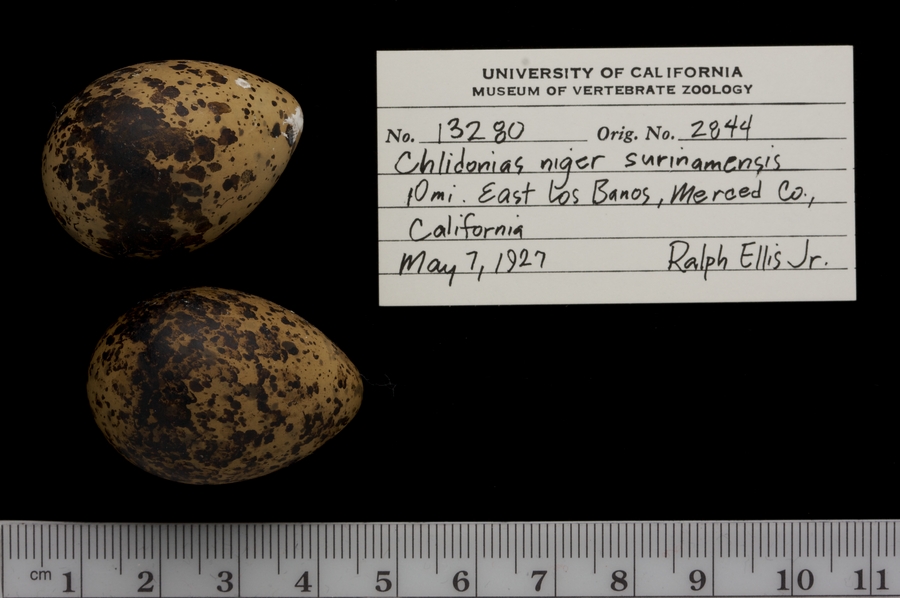 UNIVERSITY OF CALIFORNIA
MUSEUM OF VERTEBRATE ZOOLOGY
No. 13280 Orig. No. 2844
Chlidonias niger surinamensis
10mi. East Los Banos, Merced Co.,
California
May 7, 1927 Ralph Ellis Jr.
cm 1 2 3 4 5 6 7 8 9 10 11